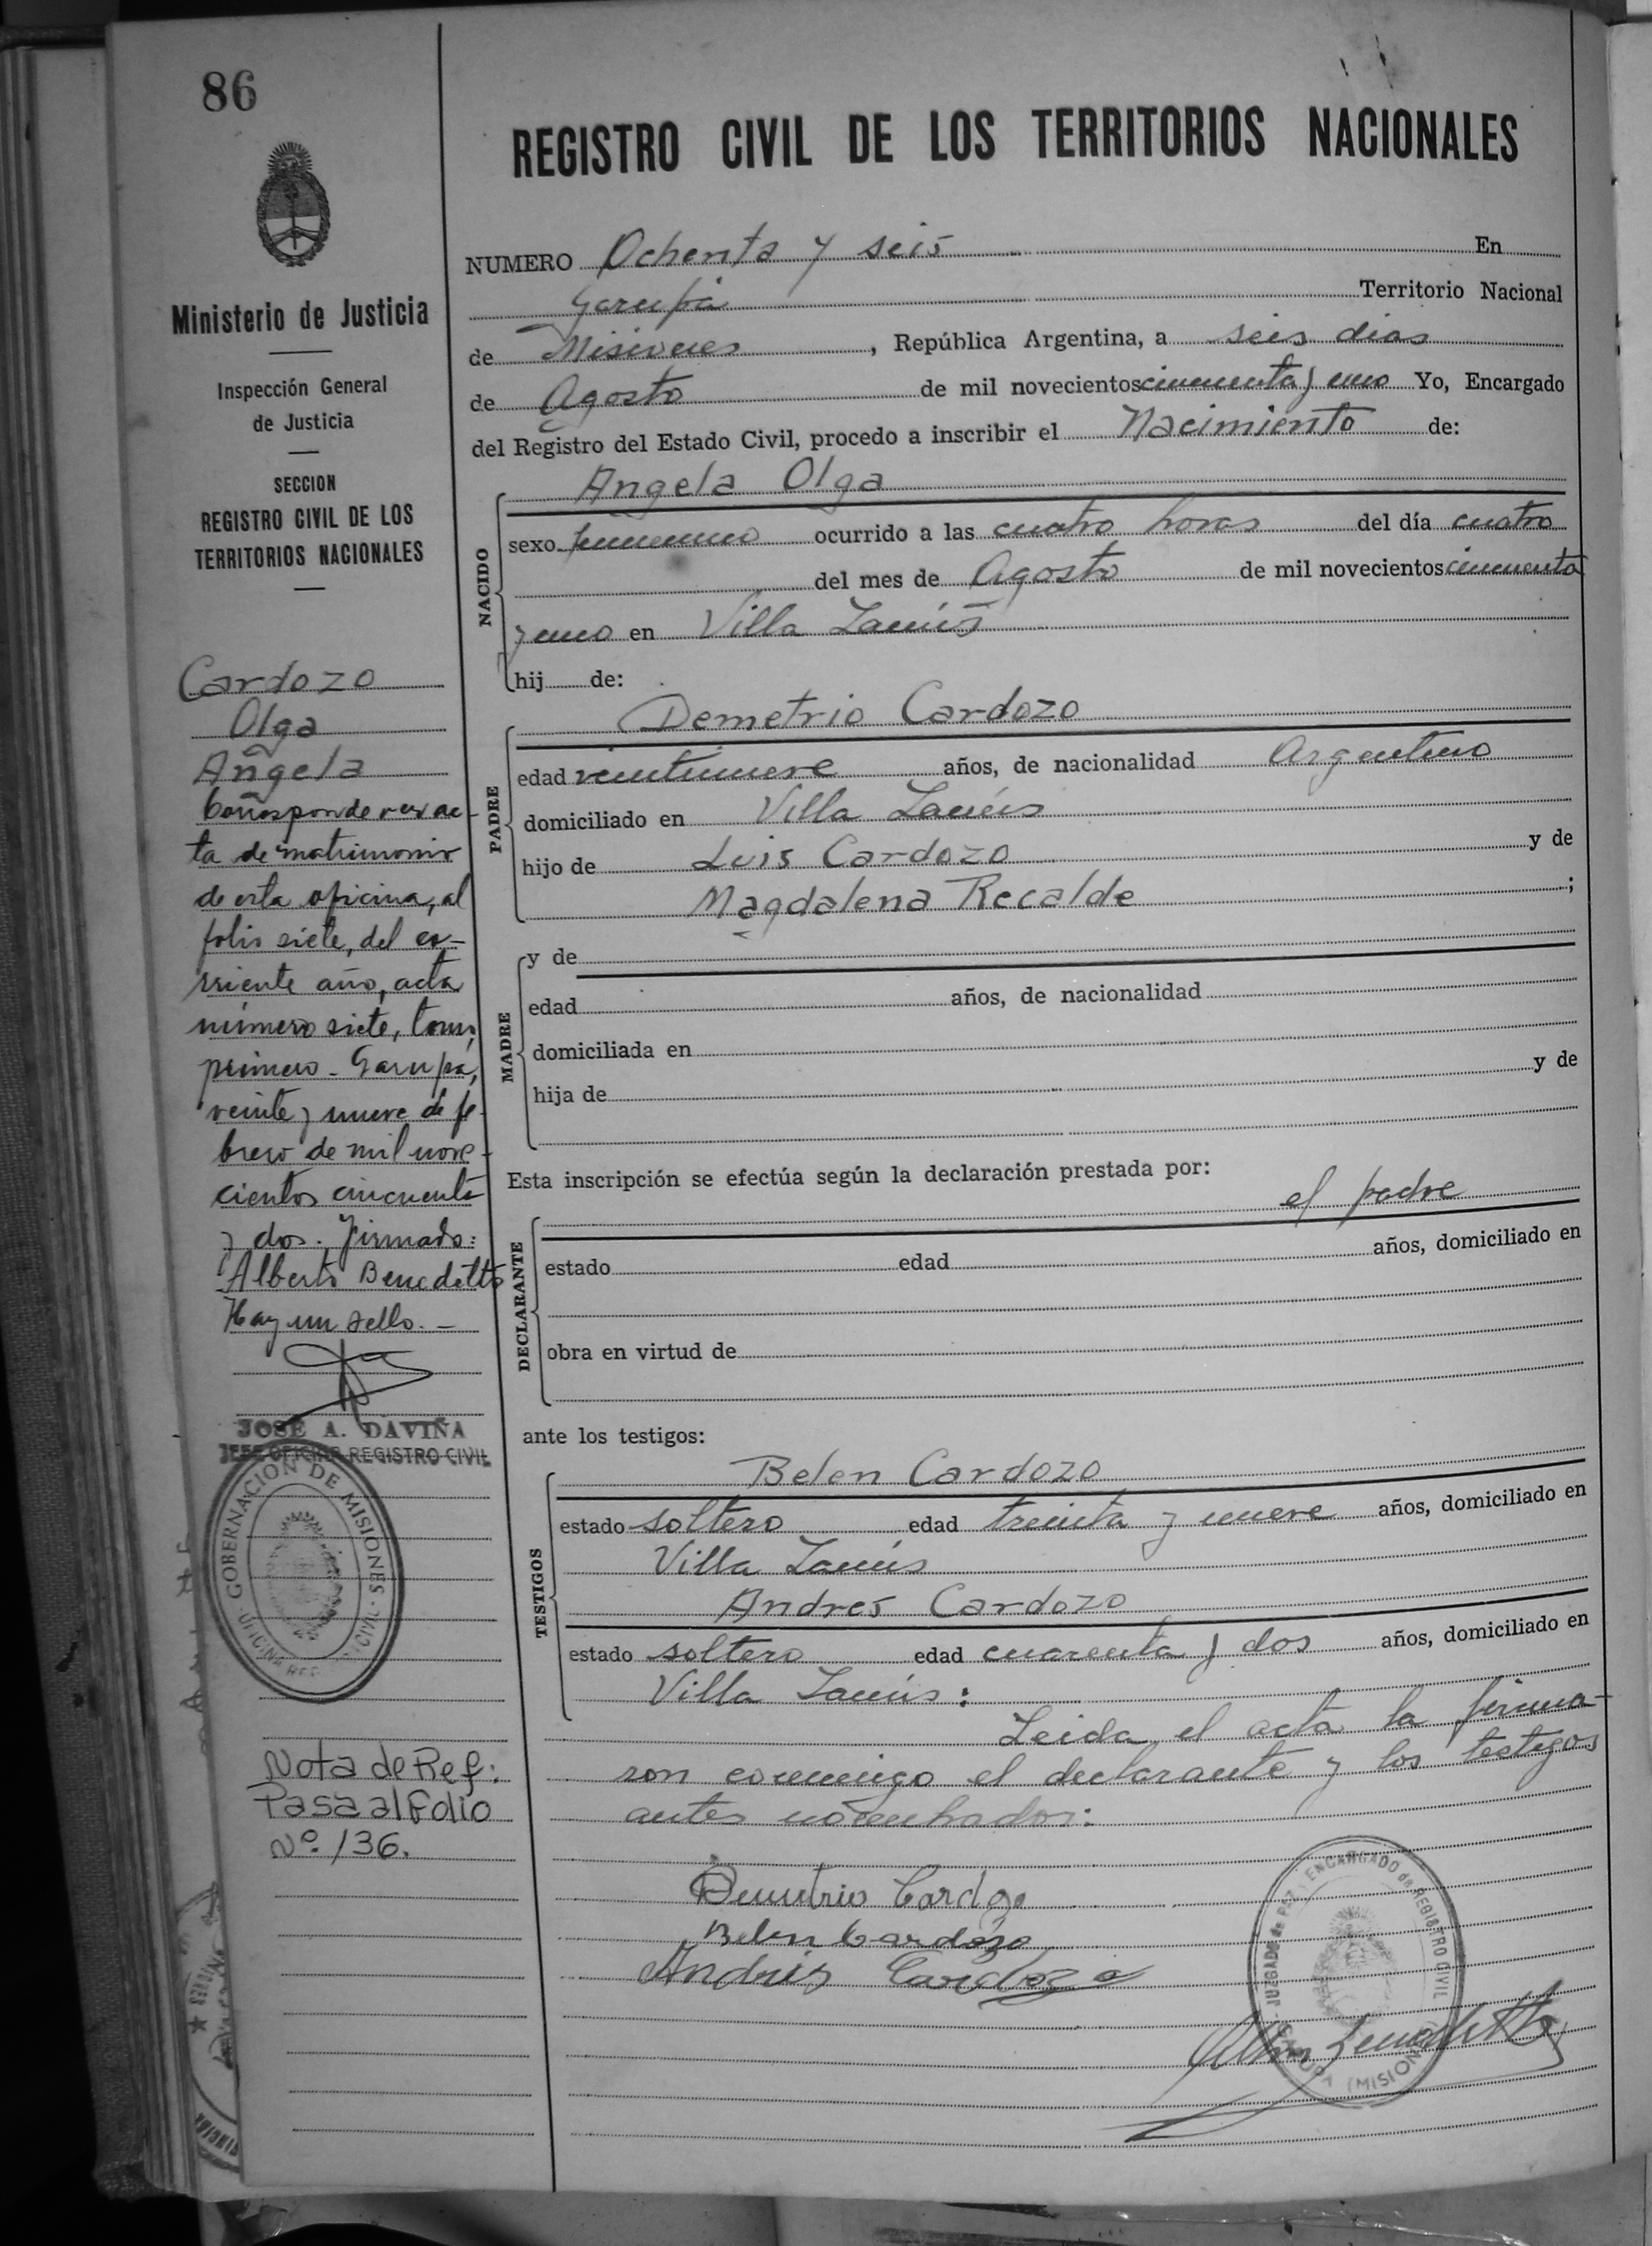 86
Ministerio de Justicia
Inspección General
de Justicia
SECCION
REGISTRO CIVIL DE LOS
TERRITORIOS NACIONALES
Cardozo
Olga
Angela
Corresponde ver ac-
ta de matrimonio
de esta oficina, al
folio siete, del co-
rriente año, acta
número siete, tomo
primero - Garupá,
veinte y nueve de fe-
brero de mil nove-
cientos cincuenta
y dos. Firmado:
Alberto Benedetto
Hay un sello. -
JOSE A. DAVIÑA
JEFE OFICINA REGISTRO CIVIL
GOBERNACION DE MISIONES
Nota de Ref:
Pasa al Folio
Nº 136.
REGISTRO CIVIL DE LOS TERRITORIOS NACIONALES
NUMERO Ochenta y seis En
Garupá Territorio Nacional
de Misiones, República Argentina, a seis dias
de Agosto de mil novecientos cincuenta y uno Yo, Encargado
del Registro del Estado Civil, procedo a inscribir el Nacimiento de:
Angela Olga
NACIDO
sexo femenino ocurrido a las cuatro horas del día cuatro
del mes de Agosto de mil novecientos cincuenta
y uno en Villa Lanús
hij de:
Demetrio Cardozo
PADRE
edad veintinueve años, de nacionalidad Argentino
domiciliado en Villa Lanús
hijo de Luis Cardozo y de
Magdalena Recalde ;
MADRE
y de
edad años, de nacionalidad
domiciliada en
hija de y de
Esta inscripción se efectúa según la declaración prestada por:
el padre
DECLARANTE
estado edad años, domiciliado en
obra en virtud de
ante los testigos:
Belen Cardozo
TESTIGOS
estado soltero edad treinta y nueve años, domiciliado en
Villa Lanús
Andres Cardozo
estado soltero edad cuarenta y dos años, domiciliado en
Villa Lanús:
Leida el acta la firma-
ron conmigo el declarante y los testigos
antes nombrados:
Demetrio Cardozo
Belen Cardozo
Andrés Cardozo
JUZGADO de PAZ y ENCARGADO de REGISTRO CIVIL
GARUPA (MISIONES)